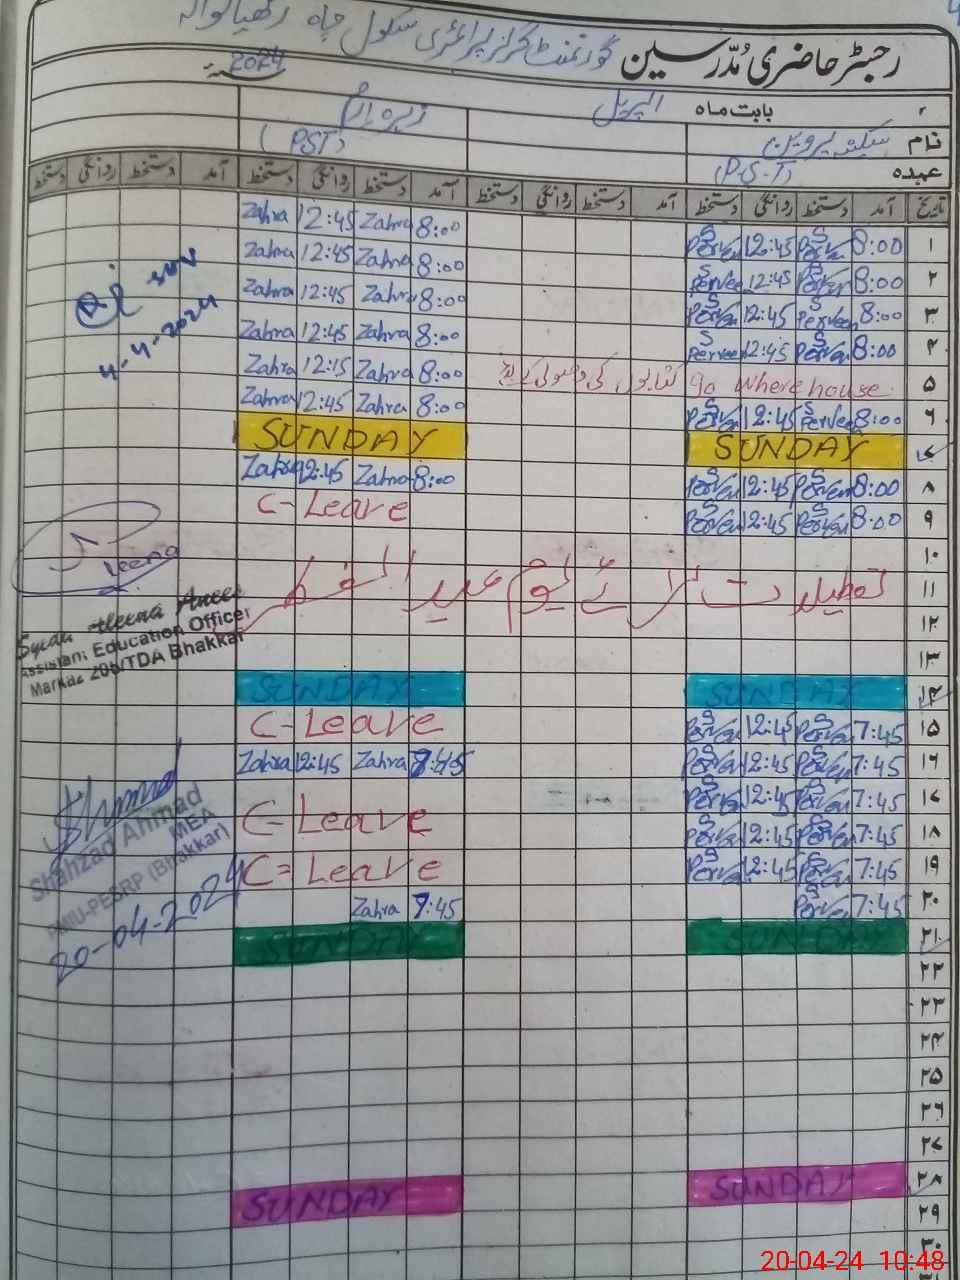 رجسٹر حاضری مُدّرسین گورنمنٹ گرلز پرائمری سکول چاہ
2024
بابت ماہ اپریل
نام سکینہ پروین
(PST)
عہدہ (P.S.T)
تاریخ آمد دستخط روانگی دستخط آمد دستخط روانگی دستخط آمد دستخط روانگی دستخط آمد دستخط روانگی دستخط
۱ 8:00 12:45 8:00 Zahra 12:45 Zahra
۲ 8:00 12:45 8:00 Zahra 12:45 Zahra
۳ 8:00 S Perveen 12:45 8:00 Zahra 12:45 Zahra
۴ 8:00 12:45 S Perveen 8:00 Zahra 12:45 Zahra
۵ go where house کتابوں کی وصولی کے لیے 8:00 Zahra 12:15 Zahra
۶ 8:00 S Perveen 12:45 8:00 Zahra 12:45 Zahra
۷ SUNDAY SUNDAY
۸ 8:00 12:45 8:00 Zahra 12:45 Zahra
۹ 8:00 12:45 C-Leave
۱۰
۱۱ تعطیلات برائے یوم عید الفطر
۱۲
۱۳
۱۴ SUNDAY SUNDAY
۱۵ 7:45 12:45 C-Leave
۱۶ 7:45 12:45 7:45 Zahra 12:45 Zahra
۱۷ 7:45 12:45 C-Leave
۱۸ 7:45 12:45
۱۹ 7:45 12:45 C-Leave
۲۰ 7:45 7:45 Zahra
۲۱ SUNDAY SUNDAY
۲۲
۲۳
۲۴
۲۵
۲۶
۲۷
۲۸ SUNDAY SUNDAY
۲۹
۳۰
۳۱
4-4-2024
Assistant Education Officer
Markaz 206/TDA Bhakkar
Shahzad Ahmad
MEA
PMIU-PESRP (Bhakkar)
20-04-2024
20-04-24 10:48